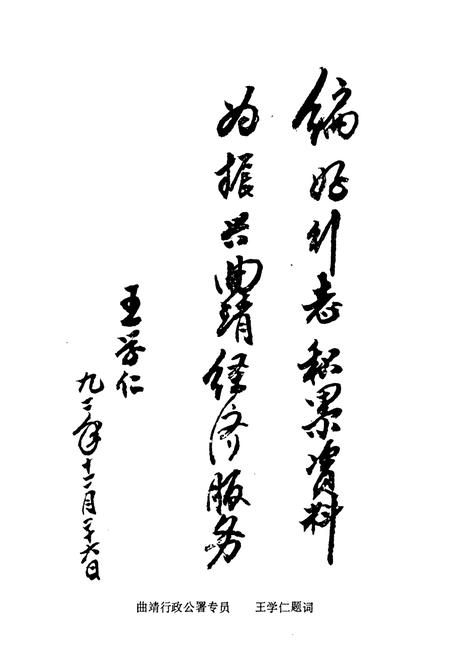 编好州志积累资料
为振兴曲靖经济服务
王学仁
九二年十二月二十六日
曲靖行政公署专员 王学仁题词